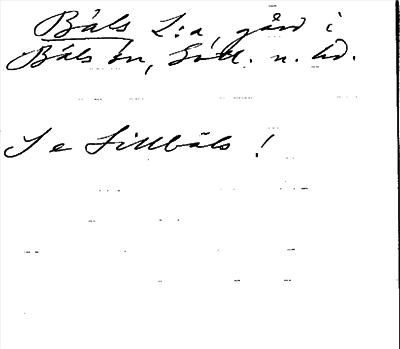 Båls L:a, gård i
Båls sn, Gotl. n. hd.
Se Lillbåls!